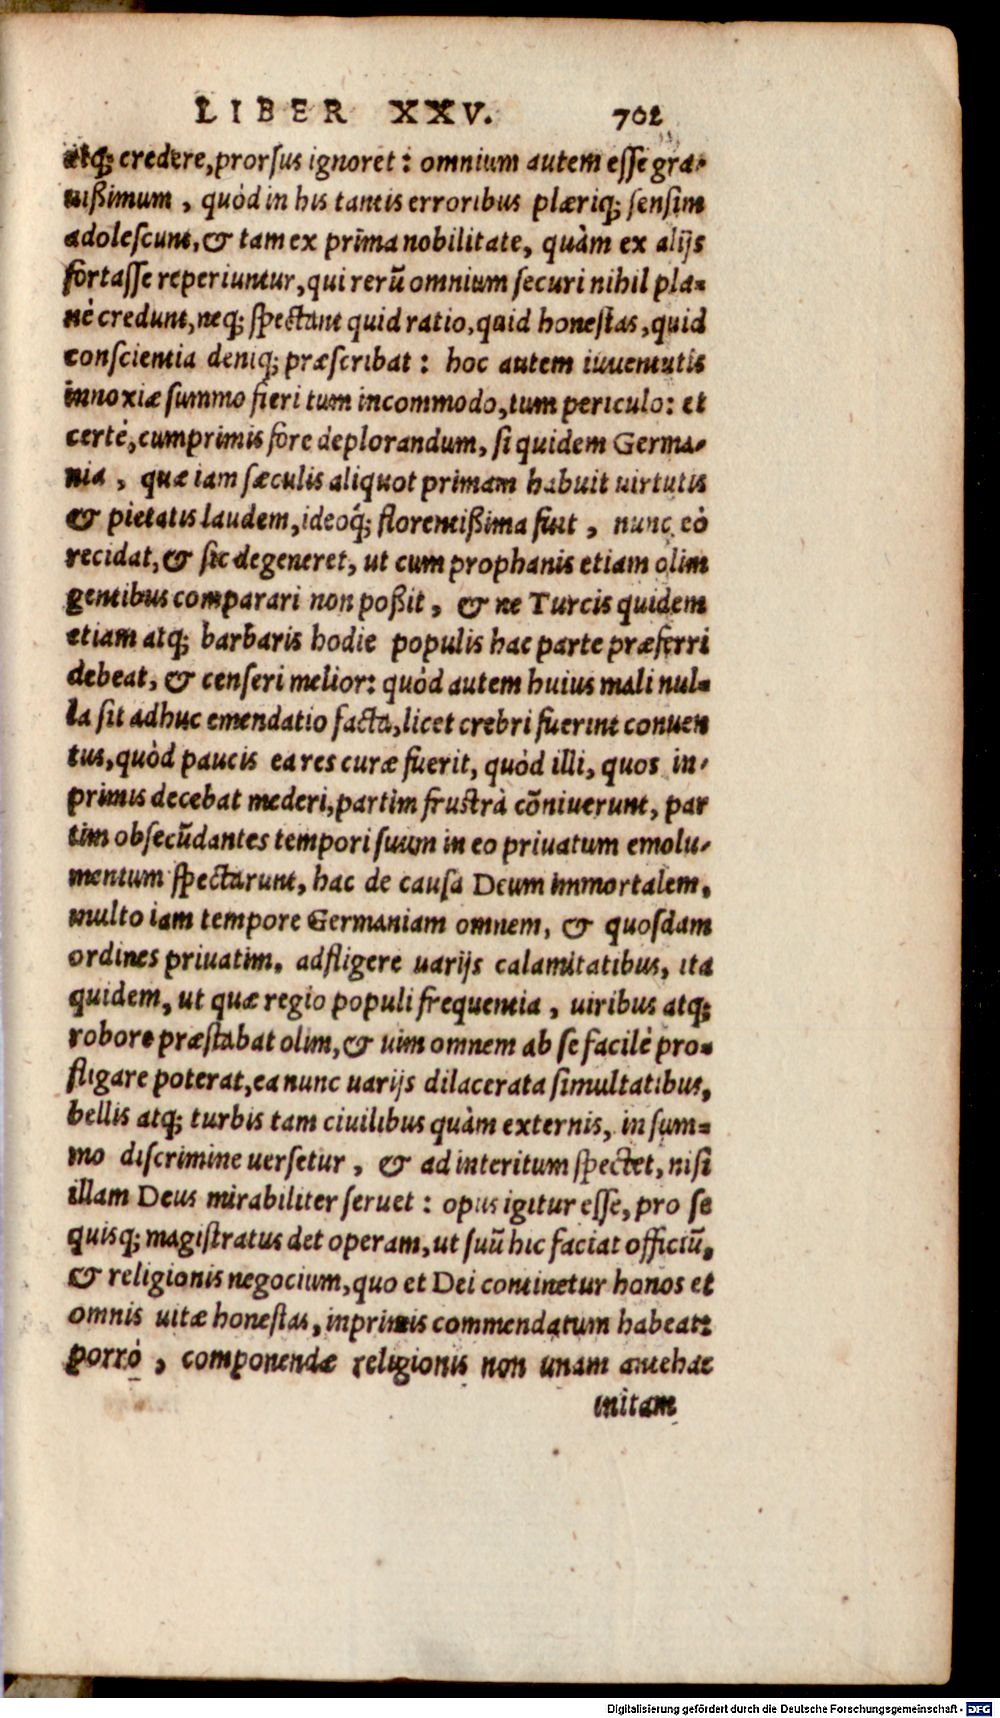 LIBER XXV. 702
atq; credere, prorsus ignoret: omnium autem esse gra-
uißimum, quòd in his tantis erroribus plæriq; sensim
adolescunt, & tam ex prima nobilitate, quàm ex alijs
fortasse reperiuntur, qui rerū omnium securi nihil pla-
nè credunt, neq; spectant quid ratio, quid honestas, quid
conscientia deniq; præscribat: hoc autem iuuentutis
innoxiæ summo fieri tum incommodo, tum periculo: et
certè, cumprimis fore deplorandum, si quidem Germa-
nia, quæ iam sæculis aliquot primam habuit uirtutis
& pietatis laudem, ideoq́; florentißima fuit, nunc eò
recidat, & sic degeneret, ut cum prophanis etiam olim
gentibus comparari non poßit, & ne Turcis quidem
etiam atq; barbaris hodie populis hac parte præferri
debeat, & censeri melior: quòd autem huius mali nul-
la sit adhuc emendatio facta, licet crebri fuerint conuen
tus, quòd paucis ea res curæ fuerit, quòd illi, quos in-
primis decebat mederi, partìm frustrà cōniuerunt, par
tim obsecūdantes tempori suum in eo priuatum emolu-
mentum spectarunt, hac de causa Deum immortalem,
multo iam tempore Germaniam omnem, & quosdam
ordines priuatim, adfligere uarijs calamitatibus, ita
quidem, ut quæ regio populi frequentia, uiribus atq;
robore præstabat olim, & uim omnem ab se facilè pro-
fligare poterat, ea nunc uarijs dilacerata simultatibus,
bellis atq; turbis tam ciuilibus quàm externis, in sum-
mo discrimine uersetur, & ad interitum spectet, nisi
illam Deus mirabiliter seruet: opus igitur esse, pro se
quisq; magistratus det operam, ut suū hic faciat officiū,
& religionis negocium, quo et Dei continetur honos et
omnis uitæ honestas, inprimis commendatum habeat:
porrò, componendæ religionis non unam antehac
initam
Digitalisierung gefördert durch die Deutsche Forschungsgemeinschaft - DFG